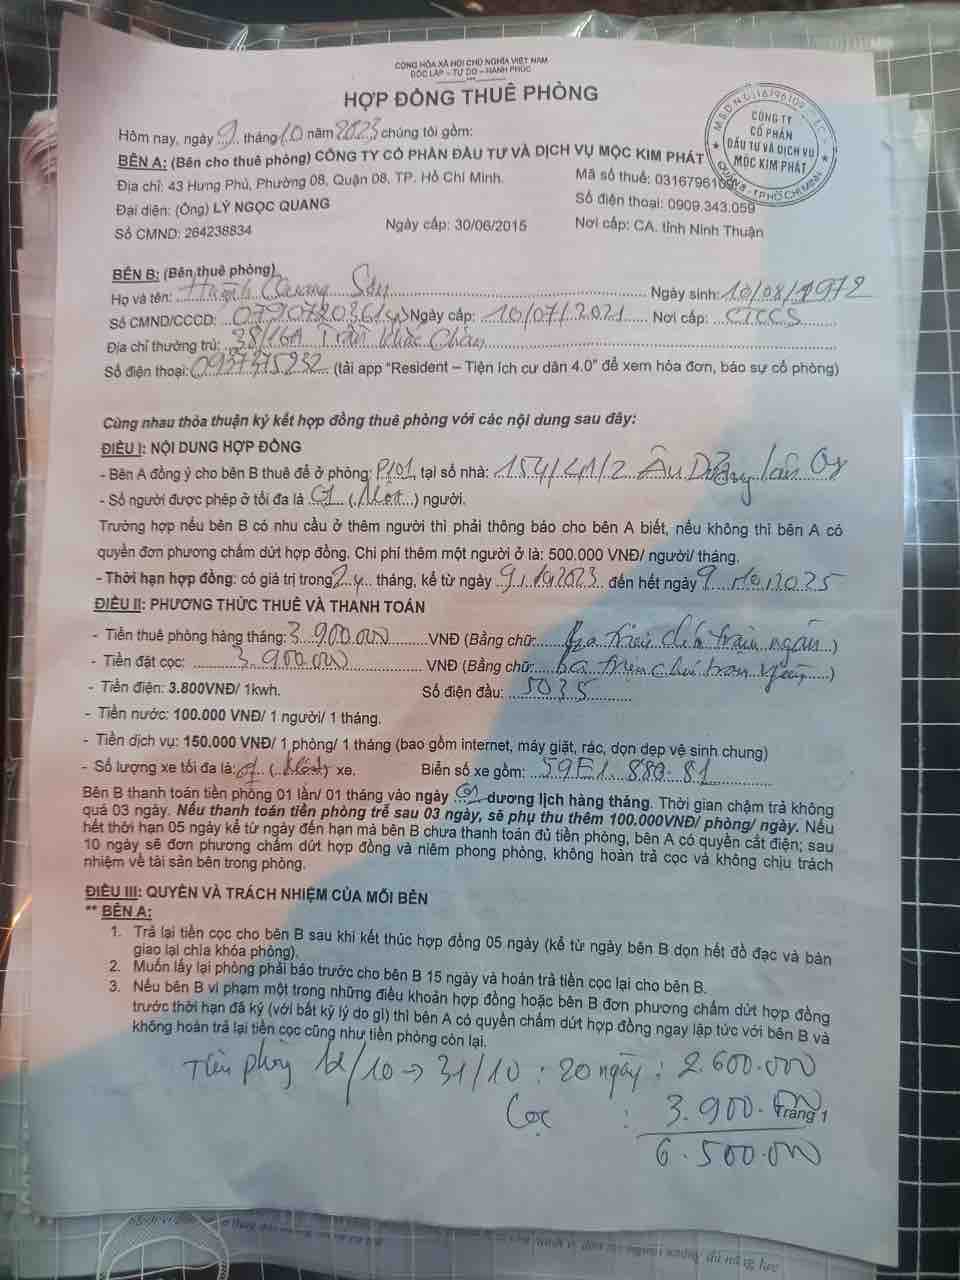 CỘNG HÒA XÃ HỘI CHỦ NGHĨA VIỆT NAM
ĐỘC LẬP – TỰ DO – HẠNH PHÚC
HỢP ĐỒNG THUÊ PHÒNG
M.S.D.N: 0316796109
CÔNG TY
CỔ PHẦN
ĐẦU TƯ VÀ DỊCH VỤ
MỘC KIM PHÁT
QUẬN 8 - TP HỒ CHÍ MINH
Hôm nay, ngày 9 tháng 10 năm 2023 chúng tôi gồm:
BÊN A: (Bên cho thuê phòng) CÔNG TY CỔ PHẦN ĐẦU TƯ VÀ DỊCH VỤ MỘC KIM PHÁT
Địa chỉ: 43 Hưng Phú, Phường 08, Quận 08, TP. Hồ Chí Minh. Mã số thuế: 0316796109
Đại diện: (Ông) LÝ NGỌC QUANG Số điện thoại: 0909.343.059
Số CMND: 264238834 Ngày cấp: 30/06/2015 Nơi cấp: CA. tỉnh Ninh Thuận
BÊN B: (Bên thuê phòng)
Họ và tên: Huỳnh Quang Sơn Ngày sinh: 10/08/1972
Số CMND/CCCD: Ngày cấp: 10/07/2021 Nơi cấp: CTCCS
Địa chỉ thường trú: 38/16A Trần Khắc Chân
Số điện thoại: 0937375232 (tải app "Resident – Tiện ích cư dân 4.0" để xem hóa đơn, báo sự cố phòng)
Cùng nhau thỏa thuận ký kết hợp đồng thuê phòng với các nội dung sau đây:
ĐIỀU I: NỘI DUNG HỢP ĐỒNG
- Bên A đồng ý cho bên B thuê để ở phòng: P101, tại số nhà: 154/41/2 Âu Dương Lân
- Số người được phép ở tối đa là 01 (Một) người.
Trường hợp nếu bên B có nhu cầu ở thêm người thì phải thông báo cho bên A biết, nếu không thì bên A có
quyền đơn phương chấm dứt hợp đồng. Chi phí thêm một người ở là: 500.000 VNĐ/ người/ tháng.
- Thời hạn hợp đồng: có giá trị trong 24 tháng, kể từ ngày 9/10/2023 đến hết ngày 9/10/2025
ĐIỀU II: PHƯƠNG THỨC THUÊ VÀ THANH TOÁN
- Tiền thuê phòng hàng tháng: 3.900.000 VNĐ (Bằng chữ: Ba triệu chín trăm ngàn)
- Tiền đặt cọc: 3.900.000 VNĐ (Bằng chữ: Ba triệu chín trăm ngàn)
- Tiền điện: 3.800VNĐ/ 1kwh. Số điện đầu: 5035
- Tiền nước: 100.000 VNĐ/ 1 người/ 1 tháng.
- Tiền dịch vụ: 150.000 VNĐ/ 1 phòng/ 1 tháng (bao gồm internet, máy giặt, rác, dọn dẹp vệ sinh chung)
- Số lượng xe tối đa là: 01 (Một) xe. Biển số xe gồm: 59E1 880.81
Bên B thanh toán tiền phòng 01 lần/ 01 tháng vào ngày 01 dương lịch hàng tháng. Thời gian chậm trả không
quá 03 ngày. Nếu thanh toán tiền phòng trễ sau 03 ngày, sẽ phụ thu thêm 100.000VNĐ/ phòng/ ngày. Nếu
hết thời hạn 05 ngày kể từ ngày đến hạn mà bên B chưa thanh toán đủ tiền phòng, bên A có quyền cắt điện; sau
10 ngày sẽ đơn phương chấm dứt hợp đồng và niêm phong phòng, không hoàn trả cọc và không chịu trách
nhiệm về tài sản bên trong phòng.
ĐIỀU III: QUYỀN VÀ TRÁCH NHIỆM CỦA MỖI BÊN
** BÊN A:
1. Trả lại tiền cọc cho bên B sau khi kết thúc hợp đồng 05 ngày (kể từ ngày bên B dọn hết đồ đạc và bàn
giao lại chìa khóa phòng).
2. Muốn lấy lại phòng phải báo trước cho bên B 15 ngày và hoàn trả tiền cọc lại cho bên B.
3. Nếu bên B vi phạm một trong những điều khoản hợp đồng hoặc bên B đơn phương chấm dứt hợp đồng
trước thời hạn đã ký (với bất kỳ lý do gì) thì bên A có quyền chấm dứt hợp đồng ngay lập tức với bên B và
không hoàn trả lại tiền cọc cũng như tiền phòng còn lại.
Tiền phòng 12/10 → 31/10 : 20 ngày : 2.600.000
Cọc : 3.900.000
Trang 1
6.500.000